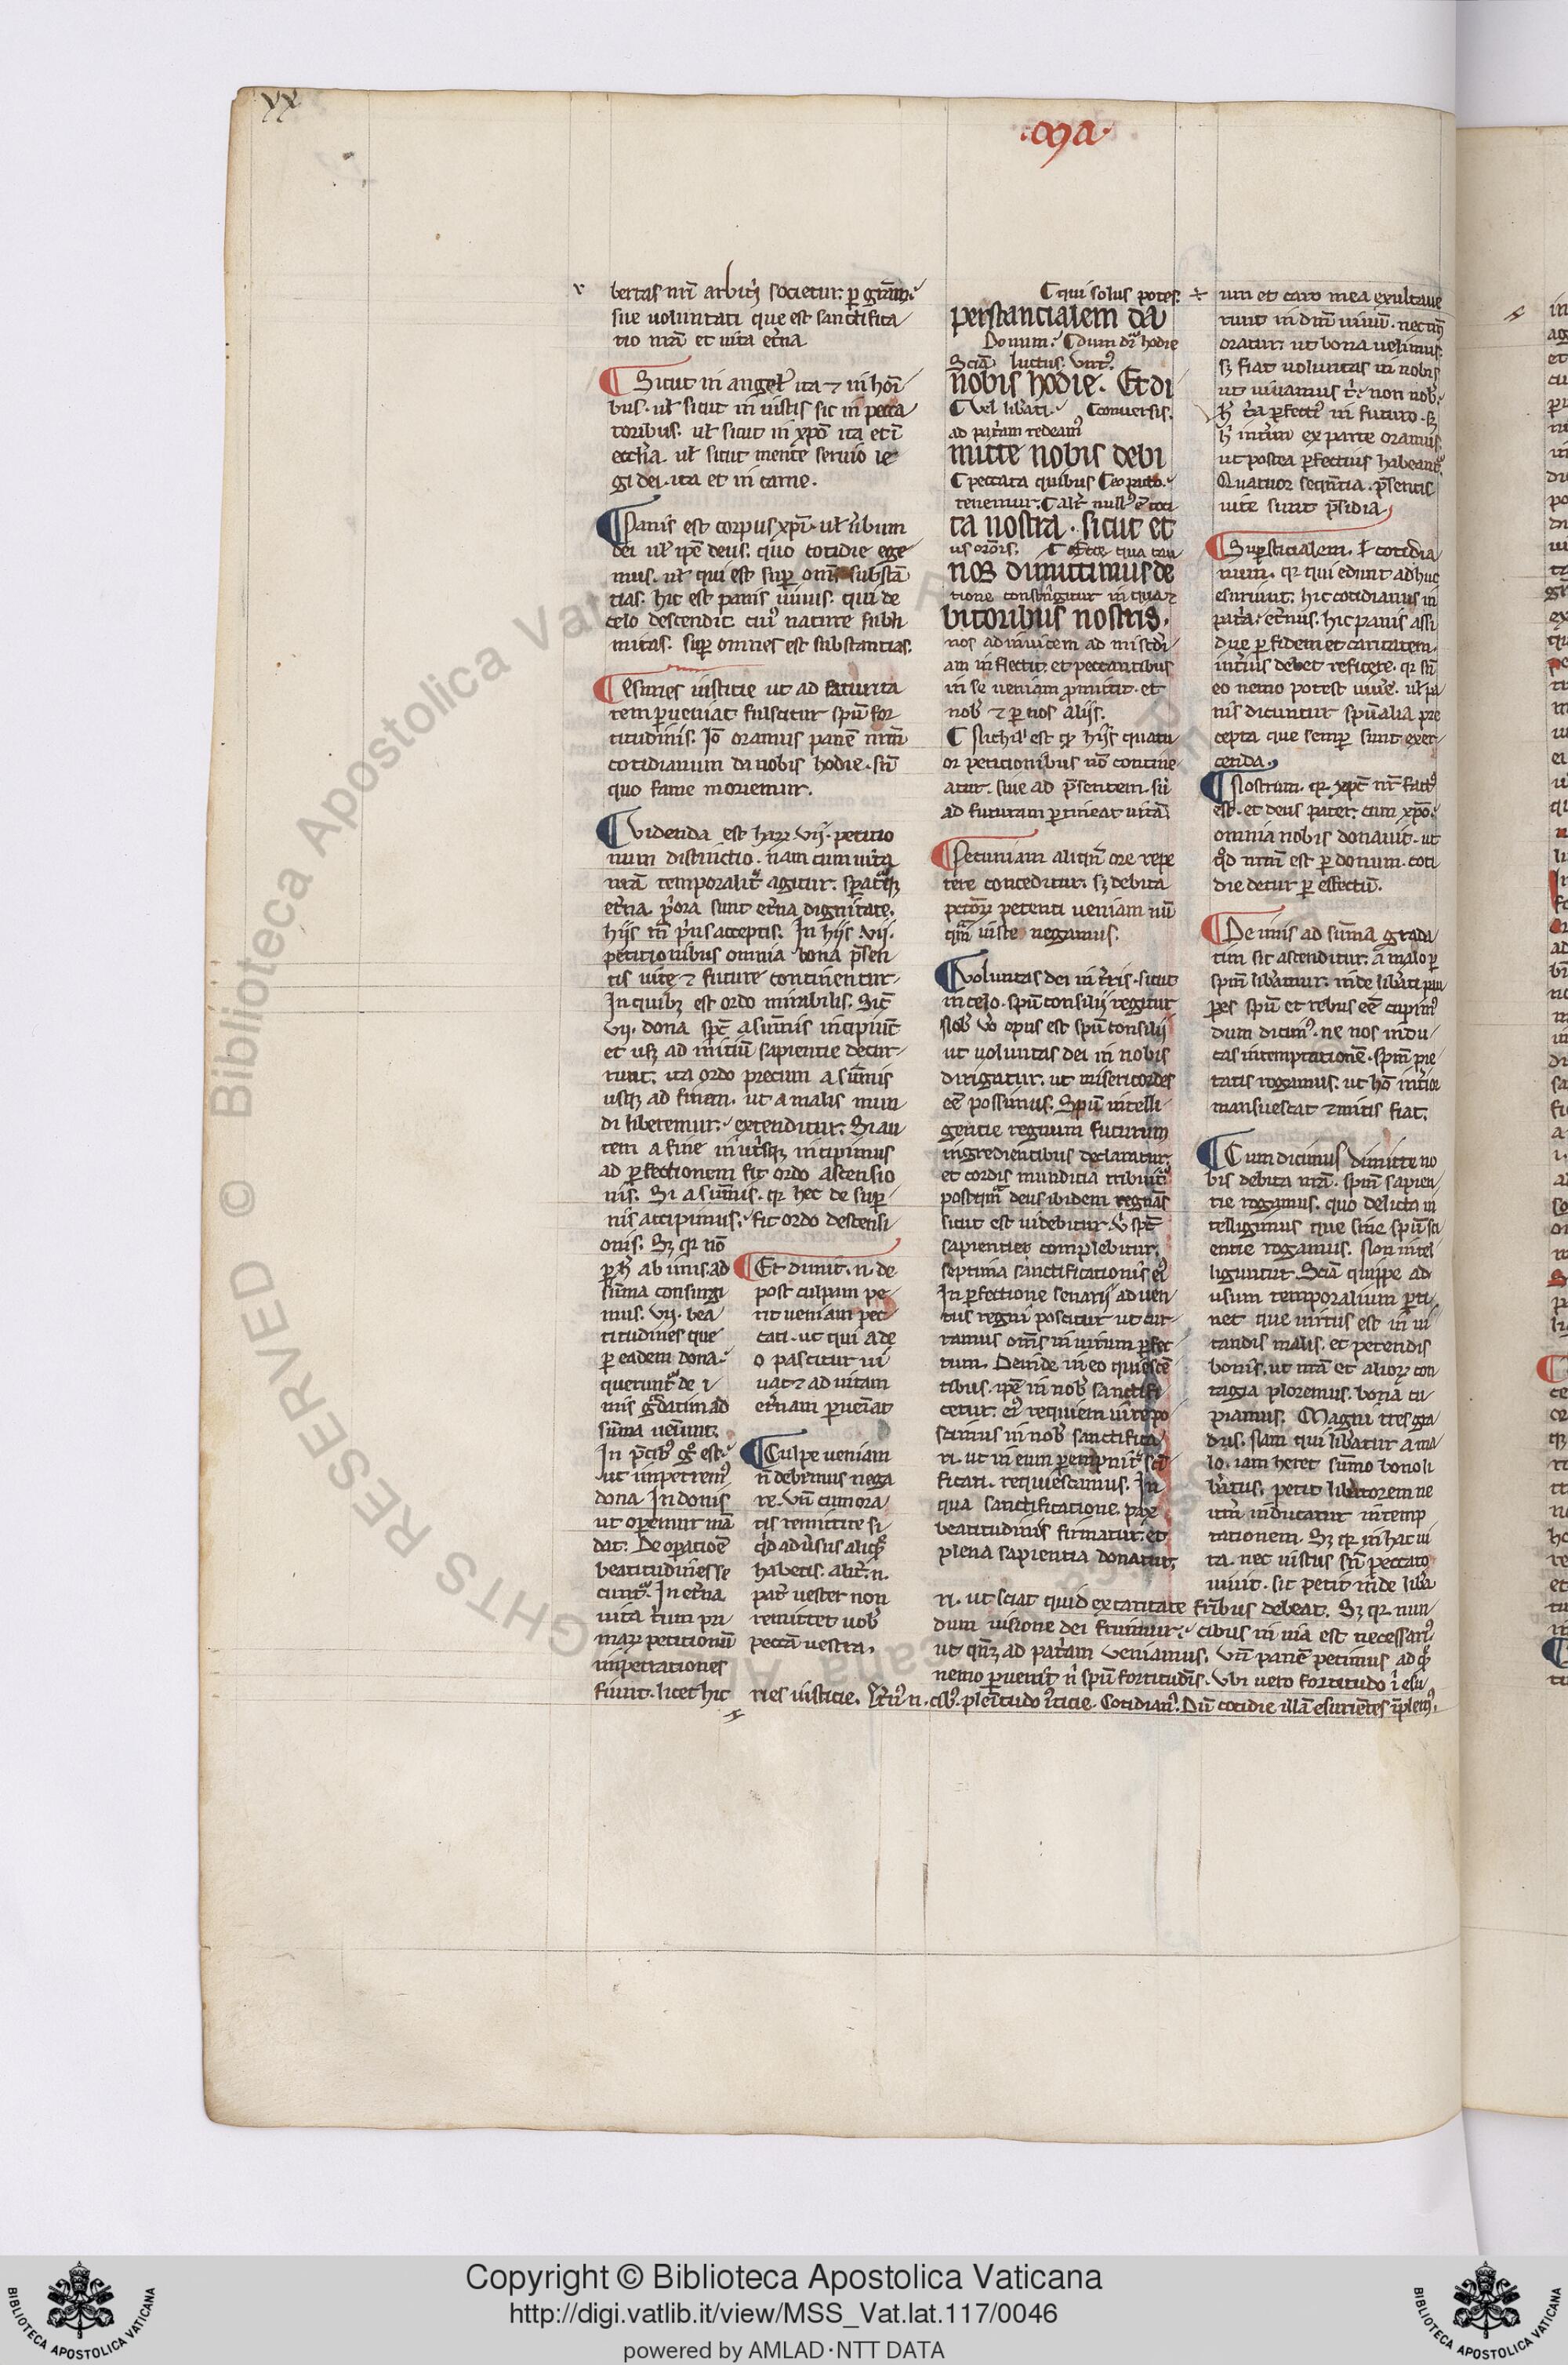 xx
.Ma.
bertas nr̄i arbit̾ij societur. ꝑ gr̄am.
siue voluntati que est sanctifica
tio nr̄a et uita et̾na
¶ Sicut in angel̾ ita ⁊ in hoī
bus. ul̾ sicut in iustis sic in pecca
toribus. ul̾ sicut in xp̄o ita et ī
eccl̾ia. ul̾ sicut mente seruio le
gi dei. ita et in carne.
¶ Panis est corpus xp̄i. ul̾ u̾bum
dei ul̾ ip̄e deus. quo cotidie ege
mus. ul̾ qui est suꝑ om̄s substā
tias. hic est panis uiuus. qui de
celo descendit cui᾽ nature subli
mitas. suꝑ omnes est substantias.
¶ Esuries iusticie ut ad saturita
tem ꝑueniat fulcitur sp̄u for
titudinis. Iō oramus panē nr̄m
cotidianum da nobis hodie. sn̄
quo fame moriemur.
¶ Videnda est haꝝ .vij. peticio
num distinctio. nam cum uita
nr̄a temporalit̾ agitur. speratqꝫ
et̾na. p̾ora sunt et̾na dignitate.
hijs tn̄ p̾us acceptis. In hijs .vij.
petitionibus omnia bona p̄sen
tis uite ⁊ future continentur.
In quibꝫ est ordo mirabilis. Sic̄
vij. dona sp̄c a sum̄is incipiūt
et usqꝫ ad initiū sapientie decur
runt. ita ordo precum a sum̄is
usqꝫ ad finem. ut a malis mun
di liberemur. extenditur. Si au
tem a fine in ut̾sqꝫ incipimus
ad ꝑfectionem fit ordo ascensio
nis. Si a sum̄is. qr hec de suꝑ
nis accipimus. fit ordo descensi
onis. Sꝫ qr nō
ꝑ h̾ ab imis ad
sum̄a consurgi
mus. vij. bea
titudines que
ꝑ eadem dona
querunt᾽ de i
mis g̾datim ad
sum̄a ueniunt.
In p̄cibꝫ g̾ est
ut impetrem᾽
dona. In donis
ut oꝑemur mā
data. De oꝑatioē
beatitudines se
cunt᾽. In et̾na
uita t̾um pri
maꝝ petitionū
impetrationes
fiunt. licet hic
¶ Et dimit. n. de
post culpam pe
tit ueniam pec
cati. ut qui a de
o pascitur ui
uat ⁊ ad uitam
et̾nam ꝑueniat
¶ Culpe ueniam
n̄ debemus nega
re. Vn̄ cum ora
tis remittite si
qd̾ adu̾sus aliquē
habetis. alit̾. n.
pat̾ uester non
remittet uob̾
peccā uestra.
¶ qui solus potes.
perstancialem da
Donum. ¶ dum dr̄ hodie
Sciā luctus. Virt᾽.
nobis hodie. Et di
¶ Vel lib̾ati. ¶ conuersis.
ad pat̾am redeam᾽
mitte nobis debi
¶ peccata quibus ¶ eo pacto.
tenemur. ¶ alit̾ null᾽ ē toti
ta nostra. sicut et
us or̄onis. ¶ Ecce qua cau
nos dimittimus de
tione constringitur in quaꝫ
bitoribus nostris.
nos ad inuicem ad mis̄cdi
am inflectit. et peccantibus
in se ueniam ꝓmittit. et
nob̾ ⁊ ꝑ nos alijs.
¶ Nichil est qd̾ hijs quatu
or peticionibus nō contine
atur. siue ad p̄sentem. siue
ad futuram ꝑtineat uitā.
¶ Pecuniam aliqn̄ ore repe
tere conceditur. sꝫ debita
pctōꝝ petenti ueniam nū
qm̄ iuste negamus.
¶ Voluntas dei in t̾ris. sicut
in celo. sp̄u consilij regitur
Nob̾ uo opus est sp̄u consilij
ut uoluntas dei in nobis
dirigatur. ut misericordes
eē possimus. Sp̄u intelli
gentie regnum futurum
ingredientibus declaratur.
et cordis mundicia tribuit᾽
postqm̄ deus ibidem regnās
sicut est uidebitur. Vbi sp̄c
sapientiet complebitur.
septima sanctificationis ei᾽
In ꝑfectione senarij aduen
tus regni poscitur ut cur
ramus om̄s in uirum ꝑfec
tum. Deinde in eo quiescē
tibus. ip̄e in nob̾ sanctifi
cetur. ei᾽ requiem uite po
scimus in nob̾ sanctifica
ri. ut in eum ꝑemPnit᾽ scī
ficati. requiescamus. In
qua sanctificatione. pax
beatitudinis firmatur. et
plena sapientia donatur,
um et caro mea exultaue
runt in dm̄ uiuū. nec tm̄
oratur. ut bona uelimus.
sꝫ fiat uoluntas in nobis
ut uiuamus t̾. non nob̾.
h̾ t̾a ꝑfect᾽ in futuro. sꝫ
h̾ int̾im ex parte oramus.
ut postea ꝑfectius habeam᾽.
Quatuor sequn̄tia. p̄sentis
uite sunt p̄sidia.
¶ Suꝑsticialem. ł cotidia
num. qr qui edunt adhuc
esuriunt. hic cotidianus in
pat̾a et̾nus. hic panis assi
due ꝑ fidem et caritatem.
int̾ius debet reficere. qr sn̄
eo nemo potest uiu̾e. ul̾ pa
nis dicuntur sp̄ualia pre
cepta que semꝑ sunt exer
cenda.
¶ Nostrum. qr xp̄c nr̄ fact᾽
est. et deus pater. cum xp̄o.
omnia nobis donauit. ut
qd̾ nr̄m est ꝑ donum. coti
die detur ꝑ effectū.
¶ De imis ad sum̄a grada
tim sic ascenditur. a malo ꝑ
sp̄m lib̾amur. inde lib̾ati pau
ꝑes sp̄u et rebus eē cupim᾽
dum dicim᾽. ne nos indu
cas in temptationē. sp̄m pie
tatis rogamus. ut hō int̾ior
mansuescat ⁊ mitis fiat.
¶ Cum dicimus dimitte no
bis debita nr̄a. sp̄m sapien
tie rogamus. quo delicta in
telligimus que sine sp̄u sci
entie rogamus. Non intel
liguntur. Sciā quippe ad
usum temporalium ꝑti
net que uirtus est in ui
tandis malis. et petendis
bonis. ut nr̄a et alioꝝ con
tagia ploremus. bona cu
piamus. Magni tres gra
dus. Nam qui lib̾atur a ma
lo. iam heret sum̄o bono li
b̾tus. petit lib̾atorem ne
it̾m inducatur in temp
tationem. Sꝫ qr in hac ui
ta. nec iustus sn̄ peccato
uiuit. sic petit inde lib̾a
ri. ut sciat quid ex caritate fr̄ibus debeat. Sꝫ qr nun
dum uisione dei fruimur. cibus in uia est necessari᾽
ut qn̄ꝫ ad pat̾am veniamus. Vn̄ panē petimus ad qd̾
nemo ꝑuenit n̾ sp̄u fortitudīs. Vbi uero fortitudo ī esu
ries iusticie. n. plen̄tudo iusticie. Cotidian᾽. Dū cotidie illā esurientes
Copyright © Biblioteca Apostolica Vaticana
http://digi.vatlib.it/view/MSS_Vat.lat.117/0046
powered by AMLAD·NTT DATA
BIBLIOTECA APOSTOLICA VATICANA
BIBLIOTECA APOSTOLICA VATICANA